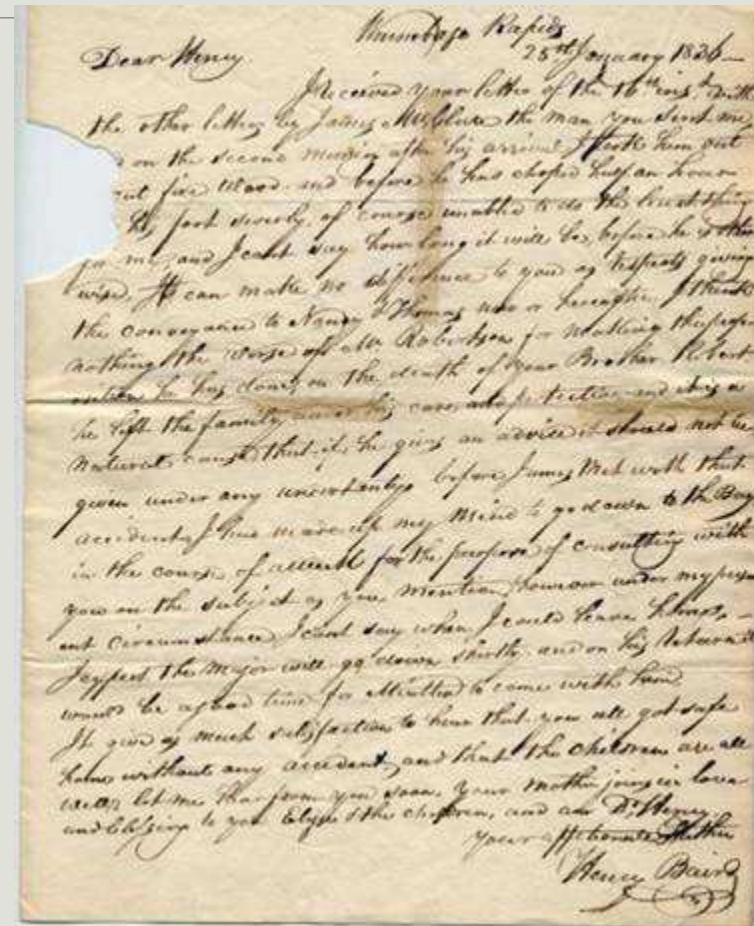 Rapids
25th January 1836
Dear Henry.
I Received your letter of the 16th inst. with
the other letter by James McClure the man you sent me
on the second morning after his arrival I took him out
cut fire Wood. and before he has choped half an hour
his foot severly, of course unable to do the least thing
for me, and I cant say how long it will be, before he is other
wise. It can make no difference to you as respects giving
the conveyance to Nancy & Thomas now or hereafter. I think
nothing the worse of Mr Robertson for making the
he has done, on the death of your Brother Robert
he left the family under his care and protection and it is a
natural cause that if he give an advice it should not be
given under any uncertainty before James Met with that
accident I had made up my Mind to go down to the Bay
in the course of a for the purpose of consulting with
you on the subject as you mention however under my pres
ent circumstance I cant say when I could leave home,
I expect the Major will go down shortly and on his return it
would be a good time for to come with him
It give us much satisfaction to hear that you all got safe
home without any accident, and that the children are all
well, let me hear from you soon, your mother joins in love
and blessing to you the children, and am Dr Henry
your affectionate Father
Henry Baird